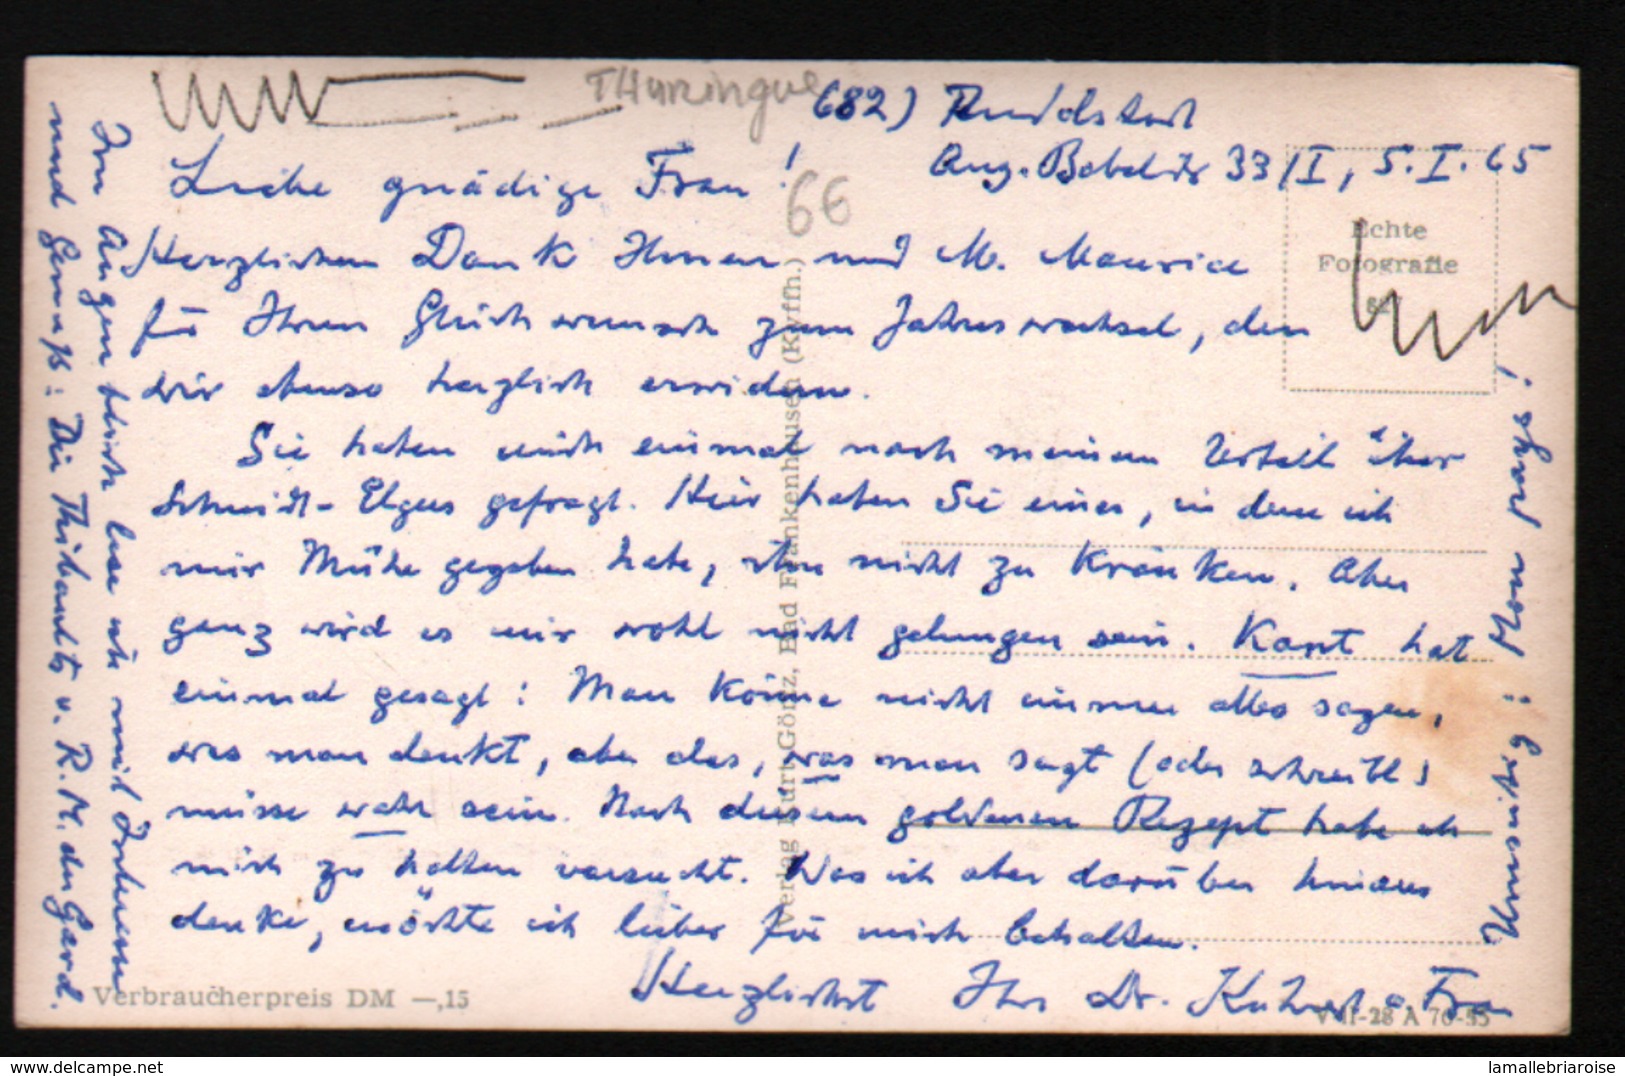 Thuringue
682) Rudolstadt
Aug. Bebelstr 33/I, 5.I.65
66
Liebe gnädige Frau!
Herzlichen Dank Ihnen und M. Maurice
für Ihren Glückwunsch zum Jahreswechsel, den
wir ebenso herzlich erwidern.
Sie haben mich einmal nach meinem Urteil über
Schmidt-Elgers gefragt. Hier haben Sie eines, in dem ich
mir Mühe gegeben habe, ihn nicht zu kränken. Aber
ganz wird es mir wohl nicht gelungen sein. Kant hat
einmal gesagt: Man könne nicht immer alles sagen,
was man denkt, aber das, was man sagt (oder schreibt)
müsse wahr sein. Nach diesem goldenen Rezept habe ich
mich zu halten versucht. Was ich aber darüber hinaus
denke, möchte ich lieber für mich behalten.
Herzlichst Ihr Dr. & Frau
Im Augenblick lese ich mit Interesse
und Genuß: Die Thibaults v. R. M. du Gard.
Umseitig: Mon pays!
Echte
Fotografie
Verlag Kurt Görnz, Bad Frankenhausen (Kyffh.)
Verbraucherpreis DM —,15
V II-28 A 76-55
lamallebriaroise
delcampe.net